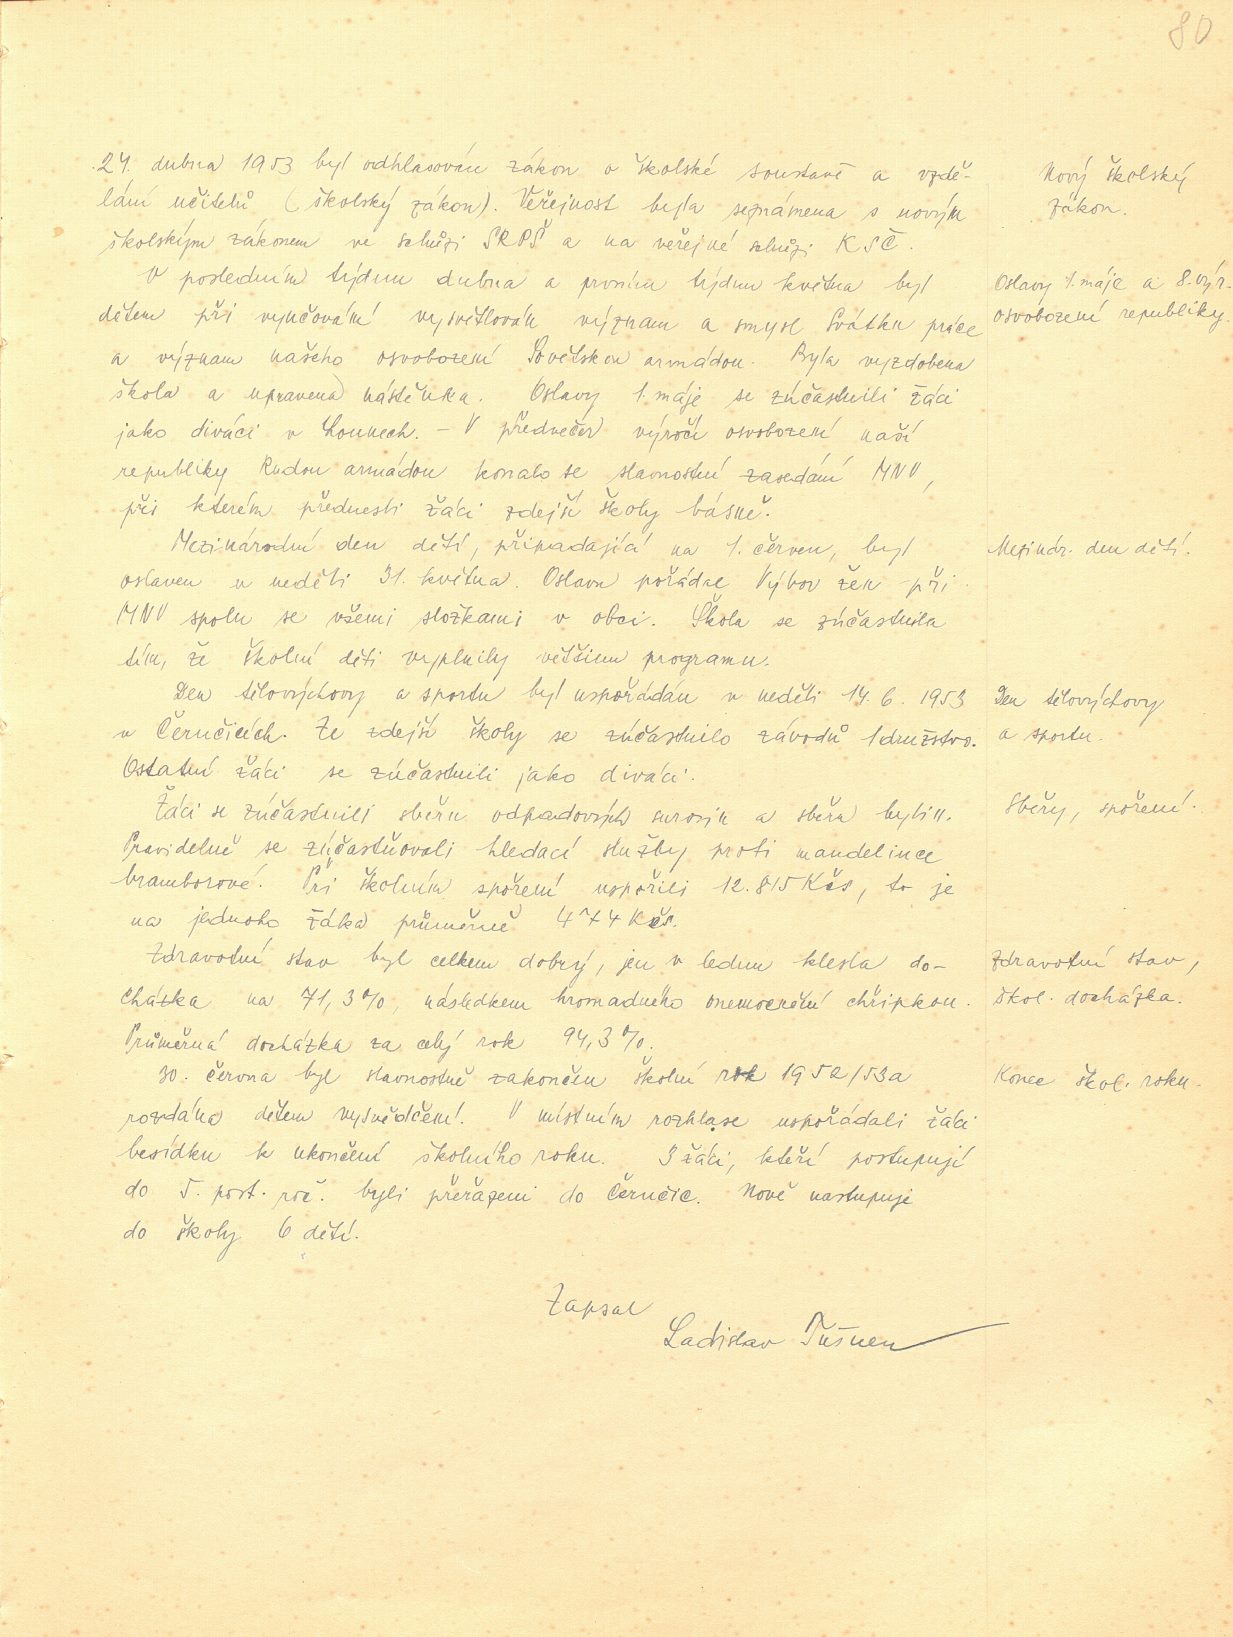 80
24. dubna 1953 byl odhlasován zákon o školské soustavě a vzdě-
lání učitelů (školský zákon). Veřejnost byla seznámena s novým
školským zákonem ve schůzi SRPŠ a na veřejné schůzi KSČ.
Nový školský
zákon.
V posledním týdnu dubna a prvním týdnu května byl
dětem při vyučování vysvětlován význam a smysl Svátku práce
a význam našeho osvobození Sovětskou armádou. Byla vyzdobena
škola a upravena nástěnka. Oslavy 1. máje se zúčastnili žáci
jako diváci v Lounech. – V předvečer výročí osvobození naší
republiky Rudou armádou konalo se slavnostní zasedání MNV,
při kterém přednesli žáci zdejší školy básně.
Oslavy 1. máje a 8. výr.
osvobození republiky.
Mezinárodní den dětí, připadající na 1. červen, byl
oslaven v neděli 31. května. Oslavu pořádal Výbor žen při
MNV spolu se všemi složkami v obci. Škola se zúčastnila
tím, že školní děti vyplnily většinu programu.
Mezinár. den dětí.
Den tělovýchovy a sportu byl uspořádán v neděli 14. 6. 1953
v Černčicích. Ze zdejší školy se zúčastnilo závodů 1 družstvo.
Ostatní žáci se zúčastnili jako diváci.
Den tělovýchovy
a sportu.
Žáci se zúčastnili sběru odpadových surovin a sběru bylin.
Pravidelně se zúčastňovali hledací služby proti mandelince
bramborové. Při školním spoření uspořili 12.815 Kčs, to je
na jednoho žáka průměrně 474 Kčs.
Sběry, spoření.
Zdravotní stav byl celkem dobrý, jen v lednu klesla do-
cházka na 71,3%, následkem hromadného onemocnění chřipkou.
Průměrná docházka za celý rok 94,3%.
Zdravotní stav,
škol. docházka.
30. června byl slavnostně zakončen školní rok 1952/53 a
rozdáno dětem vysvědčení. V místním rozhlase uspořádali žáci
besídku k ukončení školního roku. 3 žáci, kteří postupují
do 5. post. roč. byli přeřazeni do Černčic. Nově nastupuje
do školy 6 dětí.
Konec škol. roku.
Zapsal
Ladislav